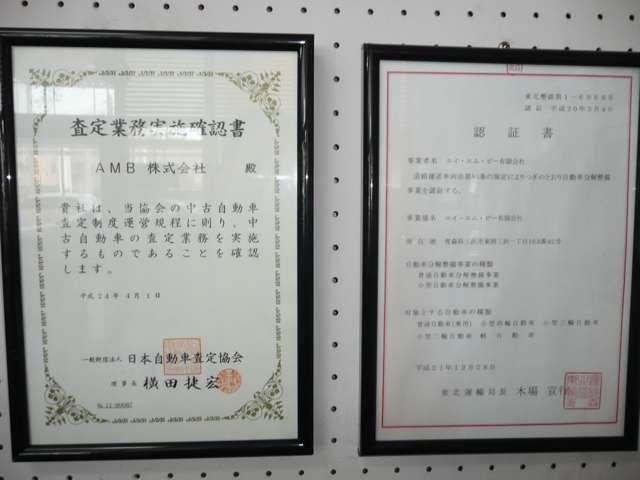 査定業務実施確認書
AMB 株式会社 殿
貴社は、当協会の中古自動車
査定制度運営規程に則り、中
古自動車の査定業務を実施
するものであることを確認
します。
平成24年4月1日
一般財団法人 日本自動車査定協会
理事長 横田捷宏
認証書
事業者名 エイ・エム・ビー有限会社
道路運送車両法第78条の規定によりつぎのとおり自動車分解整備
事業を認証する。
事業場名 エイ・エム・ビー有限会社
所在地
自動車分解整備事業の種類
普通自動車分解整備事業
小型自動車分解整備事業
対象とする自動車の種類
普通自動車(乗用) 小型四輪自動車 小型三輪自動車
小型二輪自動車 軽自動車
平成21年12月28日
東北運輸局長 木場 宣行